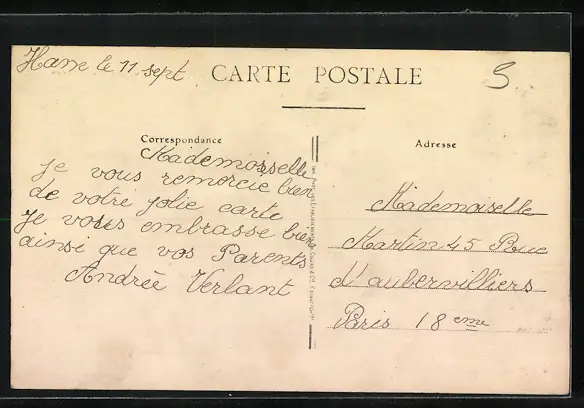 Havre le 11 sept
CARTE POSTALE
5
Correspondance
Adresse
Mademoiselle
je vous remercie bien
de votre jolie carte
Je vous embrasse bien
ainsi que vos Parents
Andrée Verlant
Mademoiselle
Martin 45 Rue
d'aubervilliers
Paris 18 eme